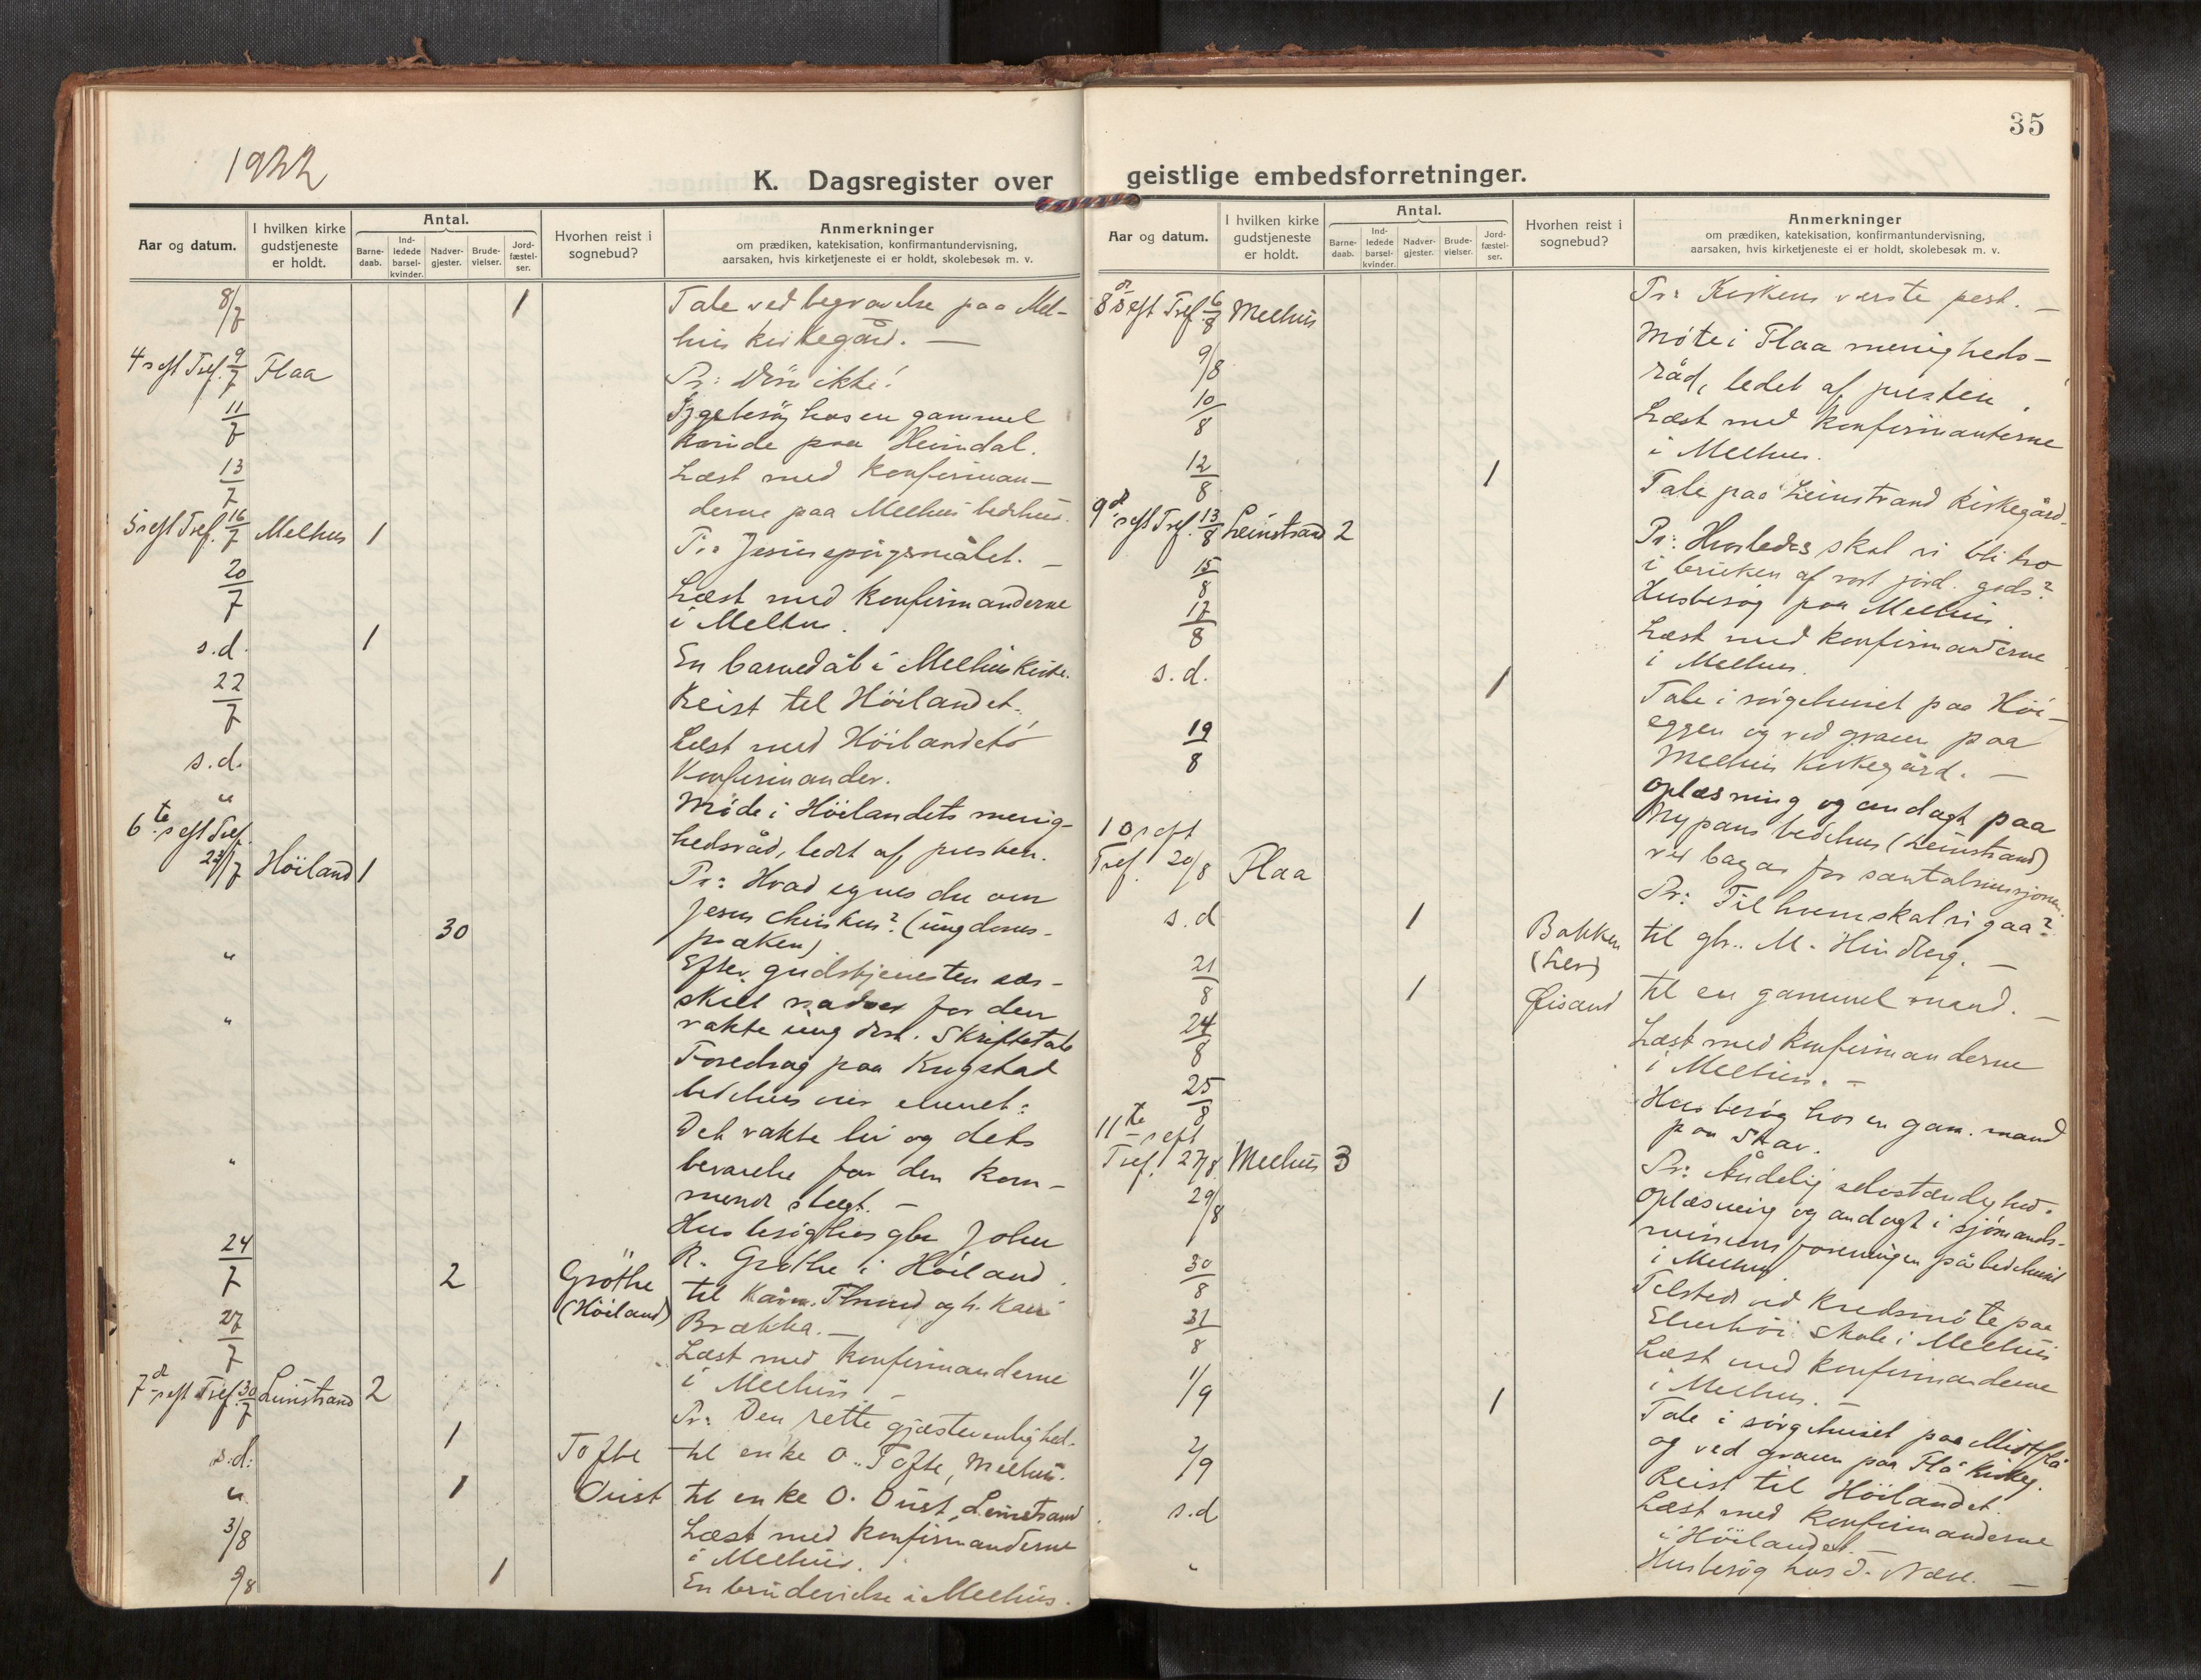 1922
K. Dagsregister over
Aar og datum.
I hvilken kirke gudstjeneste er holdt.
Antal.
Barne-daab.
Ind-ledede barsel-kvinder.
Nadver-gjester.
Brude-vielser.
Jord-fæstel-ser.
Hvorhen reist i sognebud?
Anmerkninger
om prædiken, katekisation, konfirmantundervisning,
aarsaken, hvis kirketjeneste ei er holdt, skolebesøk m. v.
8/7 1 Tale ved begravelse paa Mel-
hus kirkegård. —
4 s eft Tref. 9/7 Flaa Pr: ikke!
11/7 Sygebesøg hos en gammel
kvinde paa Heimdal.
13/7 Læst med konfirman-
derne paa Melhus bedehus.
5 s eft Tref. 16/7 Melhus 1 Pr: Jesusspørgsmålet. —
20/7 Læst med konfirmanderne
i Melhus.
s.d. 1 En barnedåb i Melhus Kirke.
22/7 Reist til Höilandet.
s.d. Læst med Höilandets
Konfirmander.
" Møde i Höilandets menig-
hedsråd, ledet af presten.
6te s eft Tref.
23/7 Höiland 1 Pr: Hvad synes du om
Jesus Christus? (ungdoms-
præken)
" 30 Efter gudstjenesten sær-
skilt nadver for den
vakte ungdom. Skriftetale
" Foredrag paa Kugstad
bedehus over emnet:
Det vakte liv og dets
bevarelse for den kom-
mende slægt. —
" Husbesøg hos gbr John
R. Grøthe i Höiland.
24/7 2 Grøthe (Höiland) til Kårm. og h. Kari
Brækka. —
27/7 Læst med konfirmanderne
i Melhus —
7d s eft Tref. 30/7 Leinstrand 2 Pr: Den rette gjæstevenlighed.
s.d. 1 Tofte til enke O. Tofte, Melhus.
" 1 Oust til enke O. Oust, Leinstrand
3/8 Læst med konfirmanderne
i Melhus.
5/8 1 En brudevielse i Melhus.
35
geistlige embedsforretninger.
Aar og datum.
I hvilken kirke gudstjeneste er holdt.
Antal.
Barne-daab.
Ind-ledede barsel-kvinder.
Nadver-gjester.
Brude-vielser.
Jord-fæstel-ser.
Hvorhen reist i sognebud?
Anmerkninger
om prædiken, katekisation, konfirmantundervisning,
aarsaken, hvis kirketjeneste ei er holdt, skolebesøk m. v.
8d s eft Tref. 6/8 Melhus Pr: Kirkens værste pest. —
9/8 Møte i Flaa menigheds-
råd, ledet af presten.
10/8 Læst med konfirmanterne
i Melhus.
12/8 1 Tale paa Leinstrand kirkegård.
9d s eft Tref. 13/8 Leinstrand 2 Pr: Hvorledes skal vi bli tro
i bruken af vort jord. gods?
15/8 Husbesøg paa Melhus.
17/8 Læst med konfirmanderne
i Melhus.
s.d. 1 Tale i sørgehuset paa Höi-
eggen og ved graven paa
Melhus Kirkegård. —
19/8 Oplæsning og andagt paa
Nypans bedehus (Leinstrand)
ved bazar for santalmisjonen.
10 s eft
Tref. 20/8 Flaa Pr: Til hvem skal vi gaa?
s.d 1 Bakken (Ler) til gbr. M. —
21/8 1 Øisand til en gammel mand. —
24/8 Læst med konfirmanderne
i Melhus. —
25/8 Husbesøg hos en gam. mand
paa Skav.
11te s eft
Tref. 27/8 Melhus 3 Pr: Åndelig selvstændighed.
29/8 Oplæsning og andagt i sjømands-
missions foreningen på bedehuset
i Melhus.
30/8 Tilstede ved Kredsmøte paa
skole i Melhus
31/8 Læst med konfirmanderne
i Melhus. —
1/9 1 Tale i sørgehuset paa
og ved graven paa Flå Kirkeg.
2/9 Reist til Höilandet.
s.d Læst med konfirmanderne
i Höilandet. —
" Husbesøg hos —